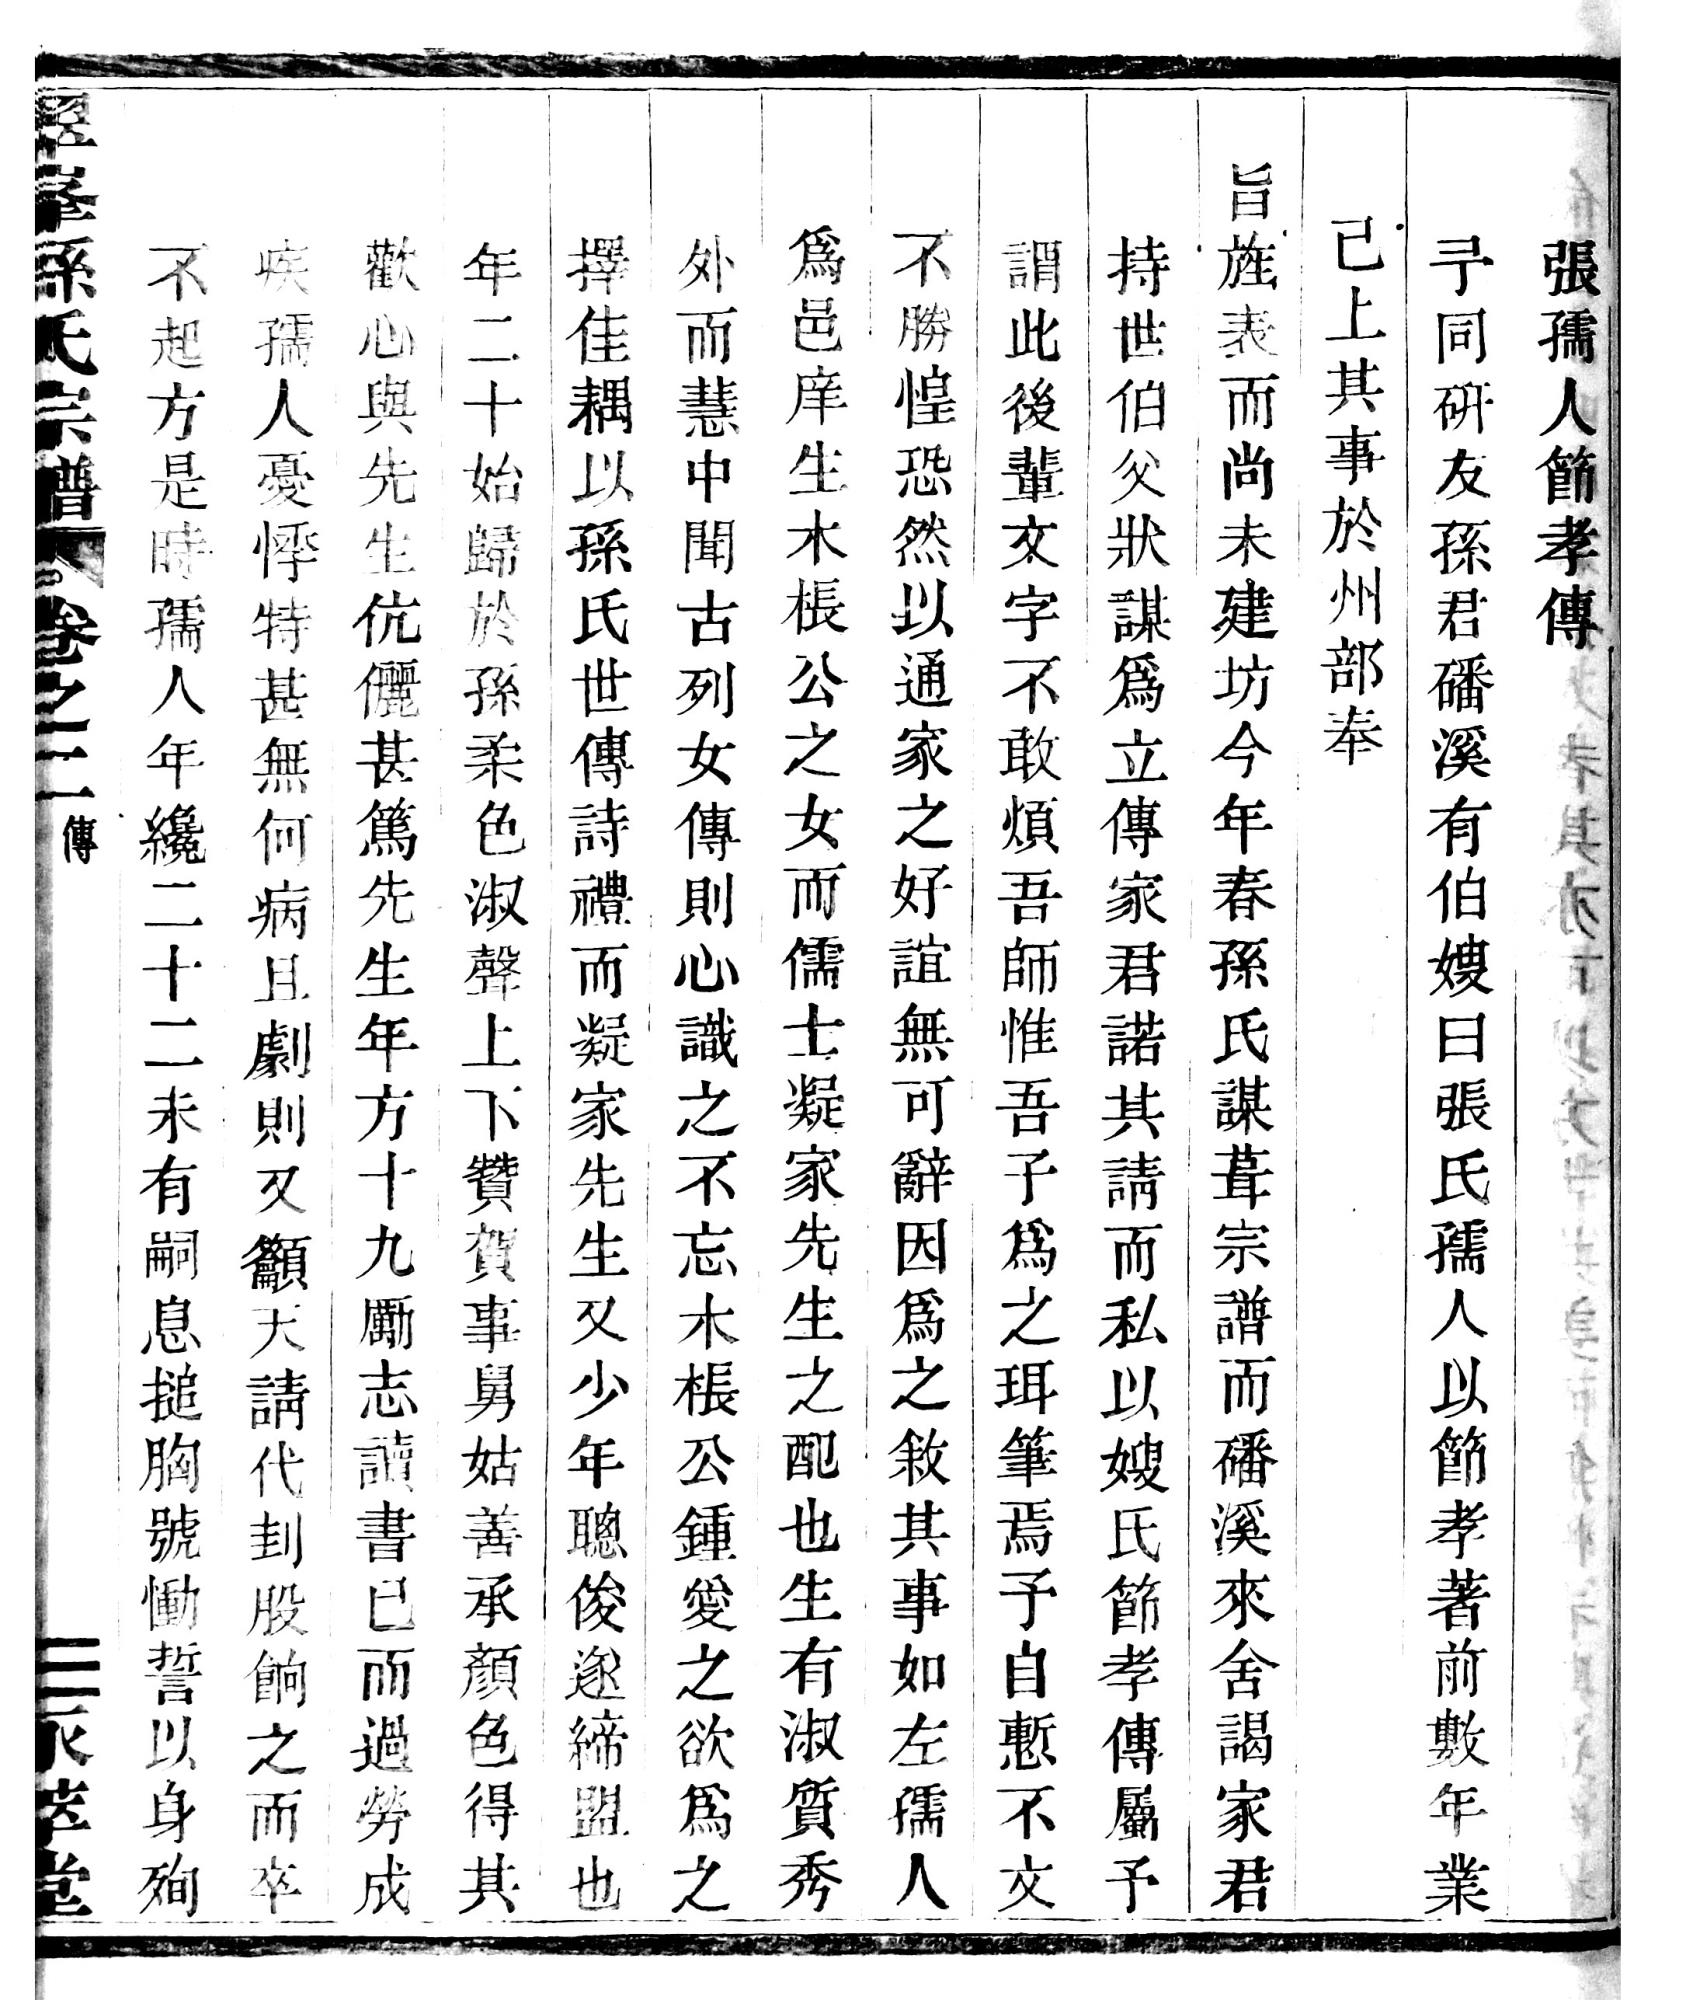 張孺人節孝傳
予同研友孫君磻溪有伯嫂曰張氏孺人以節孝著前數年業
已上其事於州部奉
旨旌表而尚未建坊今年春孫氏謀葺宗譜而磻溪來舍謁家君
持世伯父狀謀爲立傳家君諾其請而私以嫂氏節孝傳屬予
謂此後輩文字不敢煩吾師惟吾子爲之珥筆焉予自慙不文
不勝惶恐然以通家之好誼無可辭因爲之敘其事如左孺人
爲邑庠生木棖公之女而儒士凝家先生之配也生有淑質秀
外而慧中聞古列女傳則心識之不忘木棖公鍾愛之欲爲之
擇佳耦以孫氏世傳詩禮而凝家先生又少年聰俊遂締盟也
年二十始歸於孫柔色淑聲上下贊賀事舅姑善承顏色得其
歡心與先生伉儷甚篤先生年方十九勵志讀書已而過勞成
疾孺人憂悸特甚無何病且劇則又籲天請代刲股餉之而卒
不起方是時孺人年纔二十二未有嗣息搥胸號慟誓以身殉
孫氏宗譜 卷之二 傳 三 萃堂